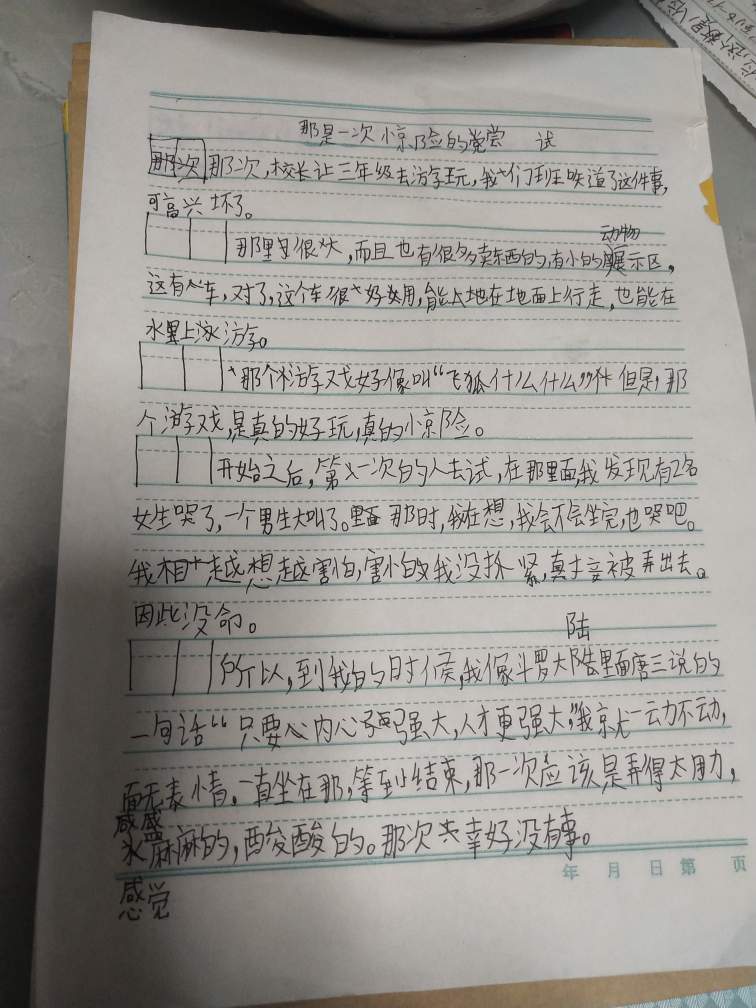 那是一次惊险的尝尝试
那次那次，校长让三年级去游学玩，我们班知道了这件事，
可高兴坏了。
动物
那里很大，而且也有很多卖东西的，有小的展示区，
这有车，对了，这个车很好用，能人地在地面上行走，也能在
水里上泳游。
那个游戏好像叫“飞狐什么什么”但是，那
个游戏，是真的好玩，真的惊险。
开始之后，第一次的人去试，在那里面，我发现有2名
女生哭了，一个男生大叫了。那时，我在想，我会不会坐完，也哭吧。
我相越想越害怕，害怕我没抓紧，直接被弄出去。
因此没命。
陆
所以，到我的时候，我像斗罗大陆里面唐三说的
一句话“只要心内心强大，人才更强大，”我就一动不动，
面无表情。一直坐在那，等到结束，那一次应该是弄得太用力，
感
麻麻的，酸酸的。那次幸好没有事。
感觉
年 月 日 第 页